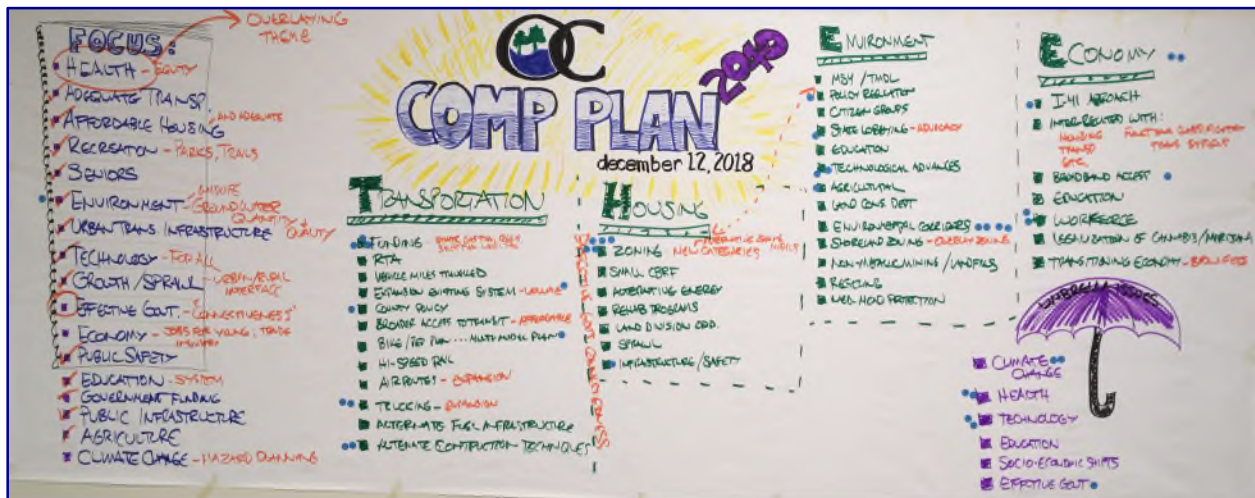 OVERLAYING
THEME
FOCUS:
HEALTH - EQUITY
ADEQUATE TRANSP.
AFFORDABLE HOUSING AND ADEQUATE
RECREATION - PARKS, TRAILS
SENIORS
ENVIRONMENT - GROUNDWATER
QUANTITY & QUALITY
URBAN TRANS INFRASTRUCTURE
TECHNOLOGY - FOR ALL
GROWTH/SPRAWL - URBAN/RURAL
INTERFACE
EFFECTIVE GOVT. - CONNECTIVENESS
ECONOMY - JOBS FOR YOUNG, TRADE
PUBLIC SAFETY
EDUCATION - SYSTEM
GOVERNMENT FUNDING
PUBLIC INFRASTRUCTURE
AGRICULTURE
CLIMATE CHANGE - HAZARD PLANNING
OC
COMP PLAN 2040
december 12, 2018
TRANSPORTATION
FUNDING -
RTA
VEHICLE MILES TRAVELED
EXPANSION EXISTING SYSTEM - VOLUME
COUNTY POLICY
BROADER ACCESS TO TRANSIT - AFFORDABLE
BIKE/PED PLAN ... MULTI MODAL PLAN
HI-SPEED RAIL
AIR ROUTES - EXPANSION
TRUCKING - EXPANSION
ALTERNATE FUEL INFRASTRUCTURE
ALTERNATE CONSTRUCTION TECHNIQUES
EFFECTIVE GOVT CONNECTIVENESS
HOUSING
ZONING NEW CATEGORIES
SMALL CBRF
ALTERNATIVE ENERGY
REHAB PROGRAMS
LAND DIVISION ORD.
SPRAWL
INFRASTRUCTURE/SAFETY
ENVIRONMENT
MS4/TMDL
POLICY REGULATION
CITIZEN GROUPS
STATE LOBBYING - ADVOCACY
EDUCATION
TECHNOLOGICAL ADVANCES
AGRICULTURAL
LAND CONS DEPT
ENVIRONMENTAL CORRIDORS
SHORELAND ZONING - OVERLAY ZONING
NON-METALLIC MINING/LANDFILLS
RECYCLING
PROTECTION
ECONOMY
I-41 APPROACH
INTER-RELATED WITH:
HOUSING
TRANSP
ETC.
FUNCTIONAL CLASSIFICATION
TRANS SYSTEM
BROADBAND ACCESS
EDUCATION
WORKFORCE
LEGALIZATION OF CANNABIS/MARIJUANA
TRANSITIONING ECONOMY - BROWNFIELDS
UMBRELLA ISSUES
CLIMATE
CHANGE
HEALTH
TECHNOLOGY
EDUCATION
SOCIO-ECONOMIC SHIFTS
EFFECTIVE GOVT